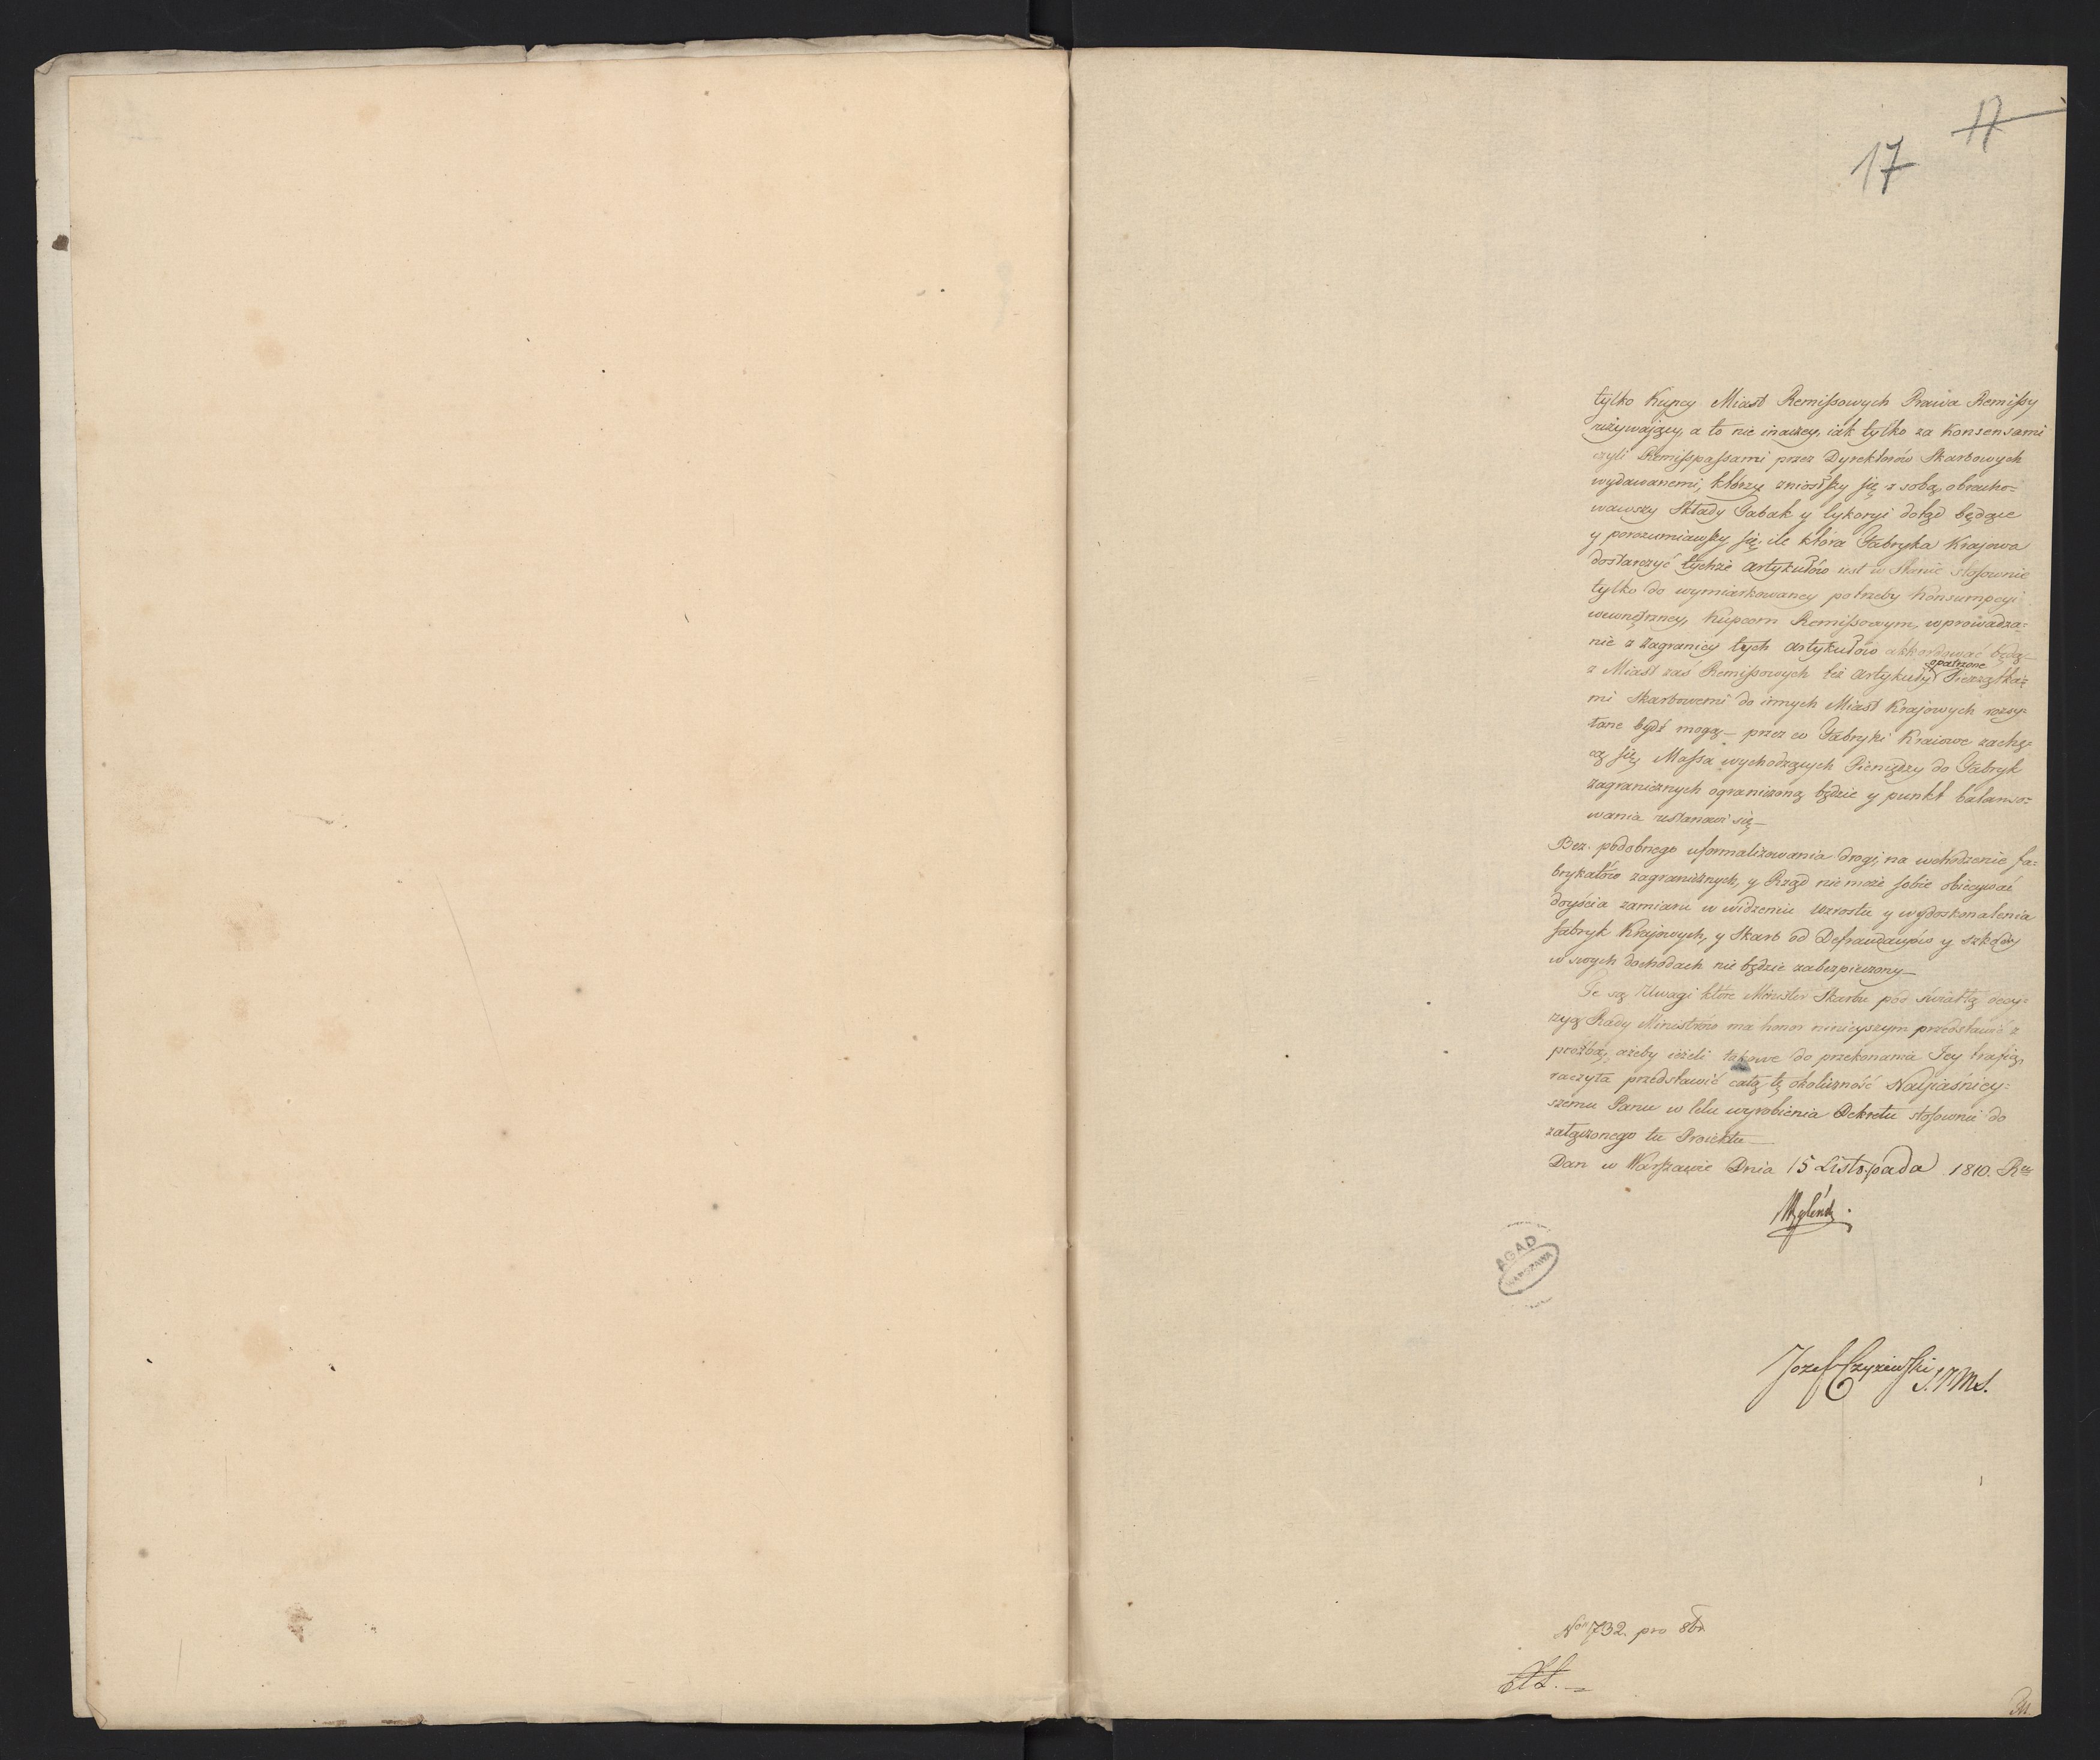 17
17
tylko Kupcy Miast Remissowych Prawa Remissy
używaiący, a to nie inaczey, iak tylko za Konsensami
czyli Remisspassami przez Dyrektorów Skarbowych
wydawanemi, którzy zniosłszy się z sobą, obracho=
wawszy Składy Tabak y Cykoryi dotąd będące
y porozumiawszy się, ile która Fabryka Krajowa
dostarczyć tychże Artykułów iest w stanie stosownie
tylko do wymiarkowaney potrzeby Konsumpcyi
wewnętrzney, Kupcom Remissowym, wprowadza=
nie z Zagranicy tych Artykułów akkordować będą—
z Miast zaś Remissowych też Artykuły opatrzone Pieczątka=
mi Skarbowemi do innych Miast Krajowych rozsy=
łane bydź mogą— przez co Fabryki Kraiowe zachę=
cą się, Massa wychodzących Pieniędzy do Fabryk
zagranicznych ograniczoną będzie y punkt balanso=
wania ustanowi się—
Bez podobnego uformalizowania drogi, na wchodzenie fa=
brykatów zagranicznych, y Rząd nie może sobie obiecywać
doyścia zamiaru w widzeniu wzrostu y wydoskonalenia
fabryk Krajowych, y Skarb od Defraudacyów y szkody
w swych dochodach nie będzie zabezpieczony—
Te są Uwagi które Minister Skarbu pod światłą decy=
zyą Rady Ministrów ma honor ninieyszym przedstawić z
prośbą, ażeby ieżeli takowe do przekonania Jey trafią,
raczyła przedstawić całą tę okoliczność Nayiaśniey=
szemu Panu w celu wyrobienia Dekretu stosownie do
załączonego tu Proiektu—
Dan w Warszawie Dnia 15 Listopada 1810. R.
AGAD
WARSZAWA
Jozef Czyżewski
No 732. pro 8br